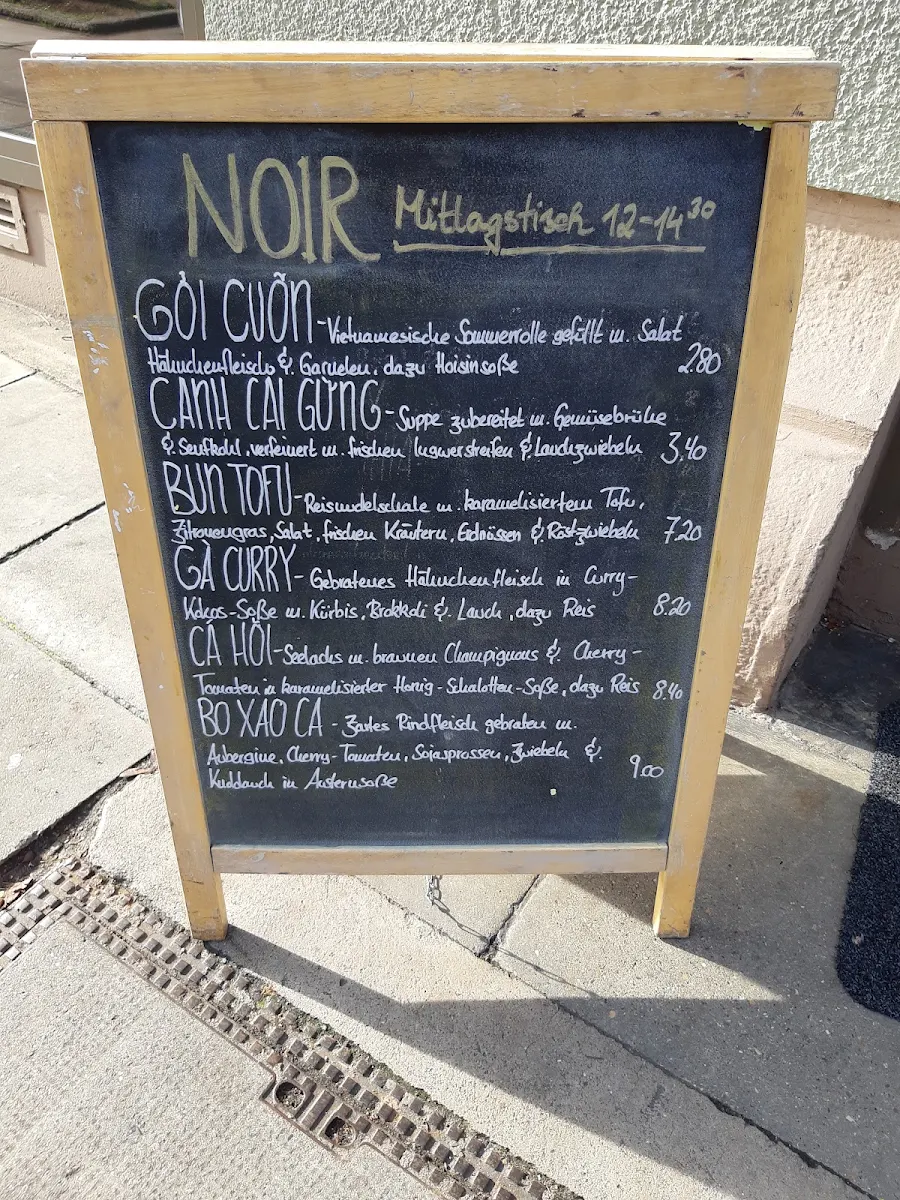 NOIR Mittagstisch 12-14³⁰
GỎI CUỐN - Vietnamesische Sommerrolle gefüllt m. Salat
Hähnchenfleisch & Garnelen, dazu Hoisinsoße 2.80
CANH CAI GUNG - Suppe zubereitet m. Gemüsebrühe
& Senfkohl, verfeinert m. frischen Ingwerstreifen & Lauchzwiebeln 3.40
BUN TOFU - Reisnudelschale m. karamelisiertem Tofu,
Zitronengras, Salat, frischen Kräutern, Erdnüssen & Röstzwiebeln 7.20
GA CURRY - Gebratenes Hähnchenfleisch in Curry-
Kokos-Soße m. Kürbis, Brokkoli & Lauch, dazu Reis 8.20
CA HÔI - Seelachs m. braunen Champignons & Cherry-
Tomaten in karamelisierter Honig-Schalotten-Soße, dazu Reis 8.40
BO XAO CA - Zartes Rindfleisch gebraten m.
Aubergine, Cherry-Tomaten, Sojasprossen, Zwiebeln &
Knoblauch in Austernsoße 9.00